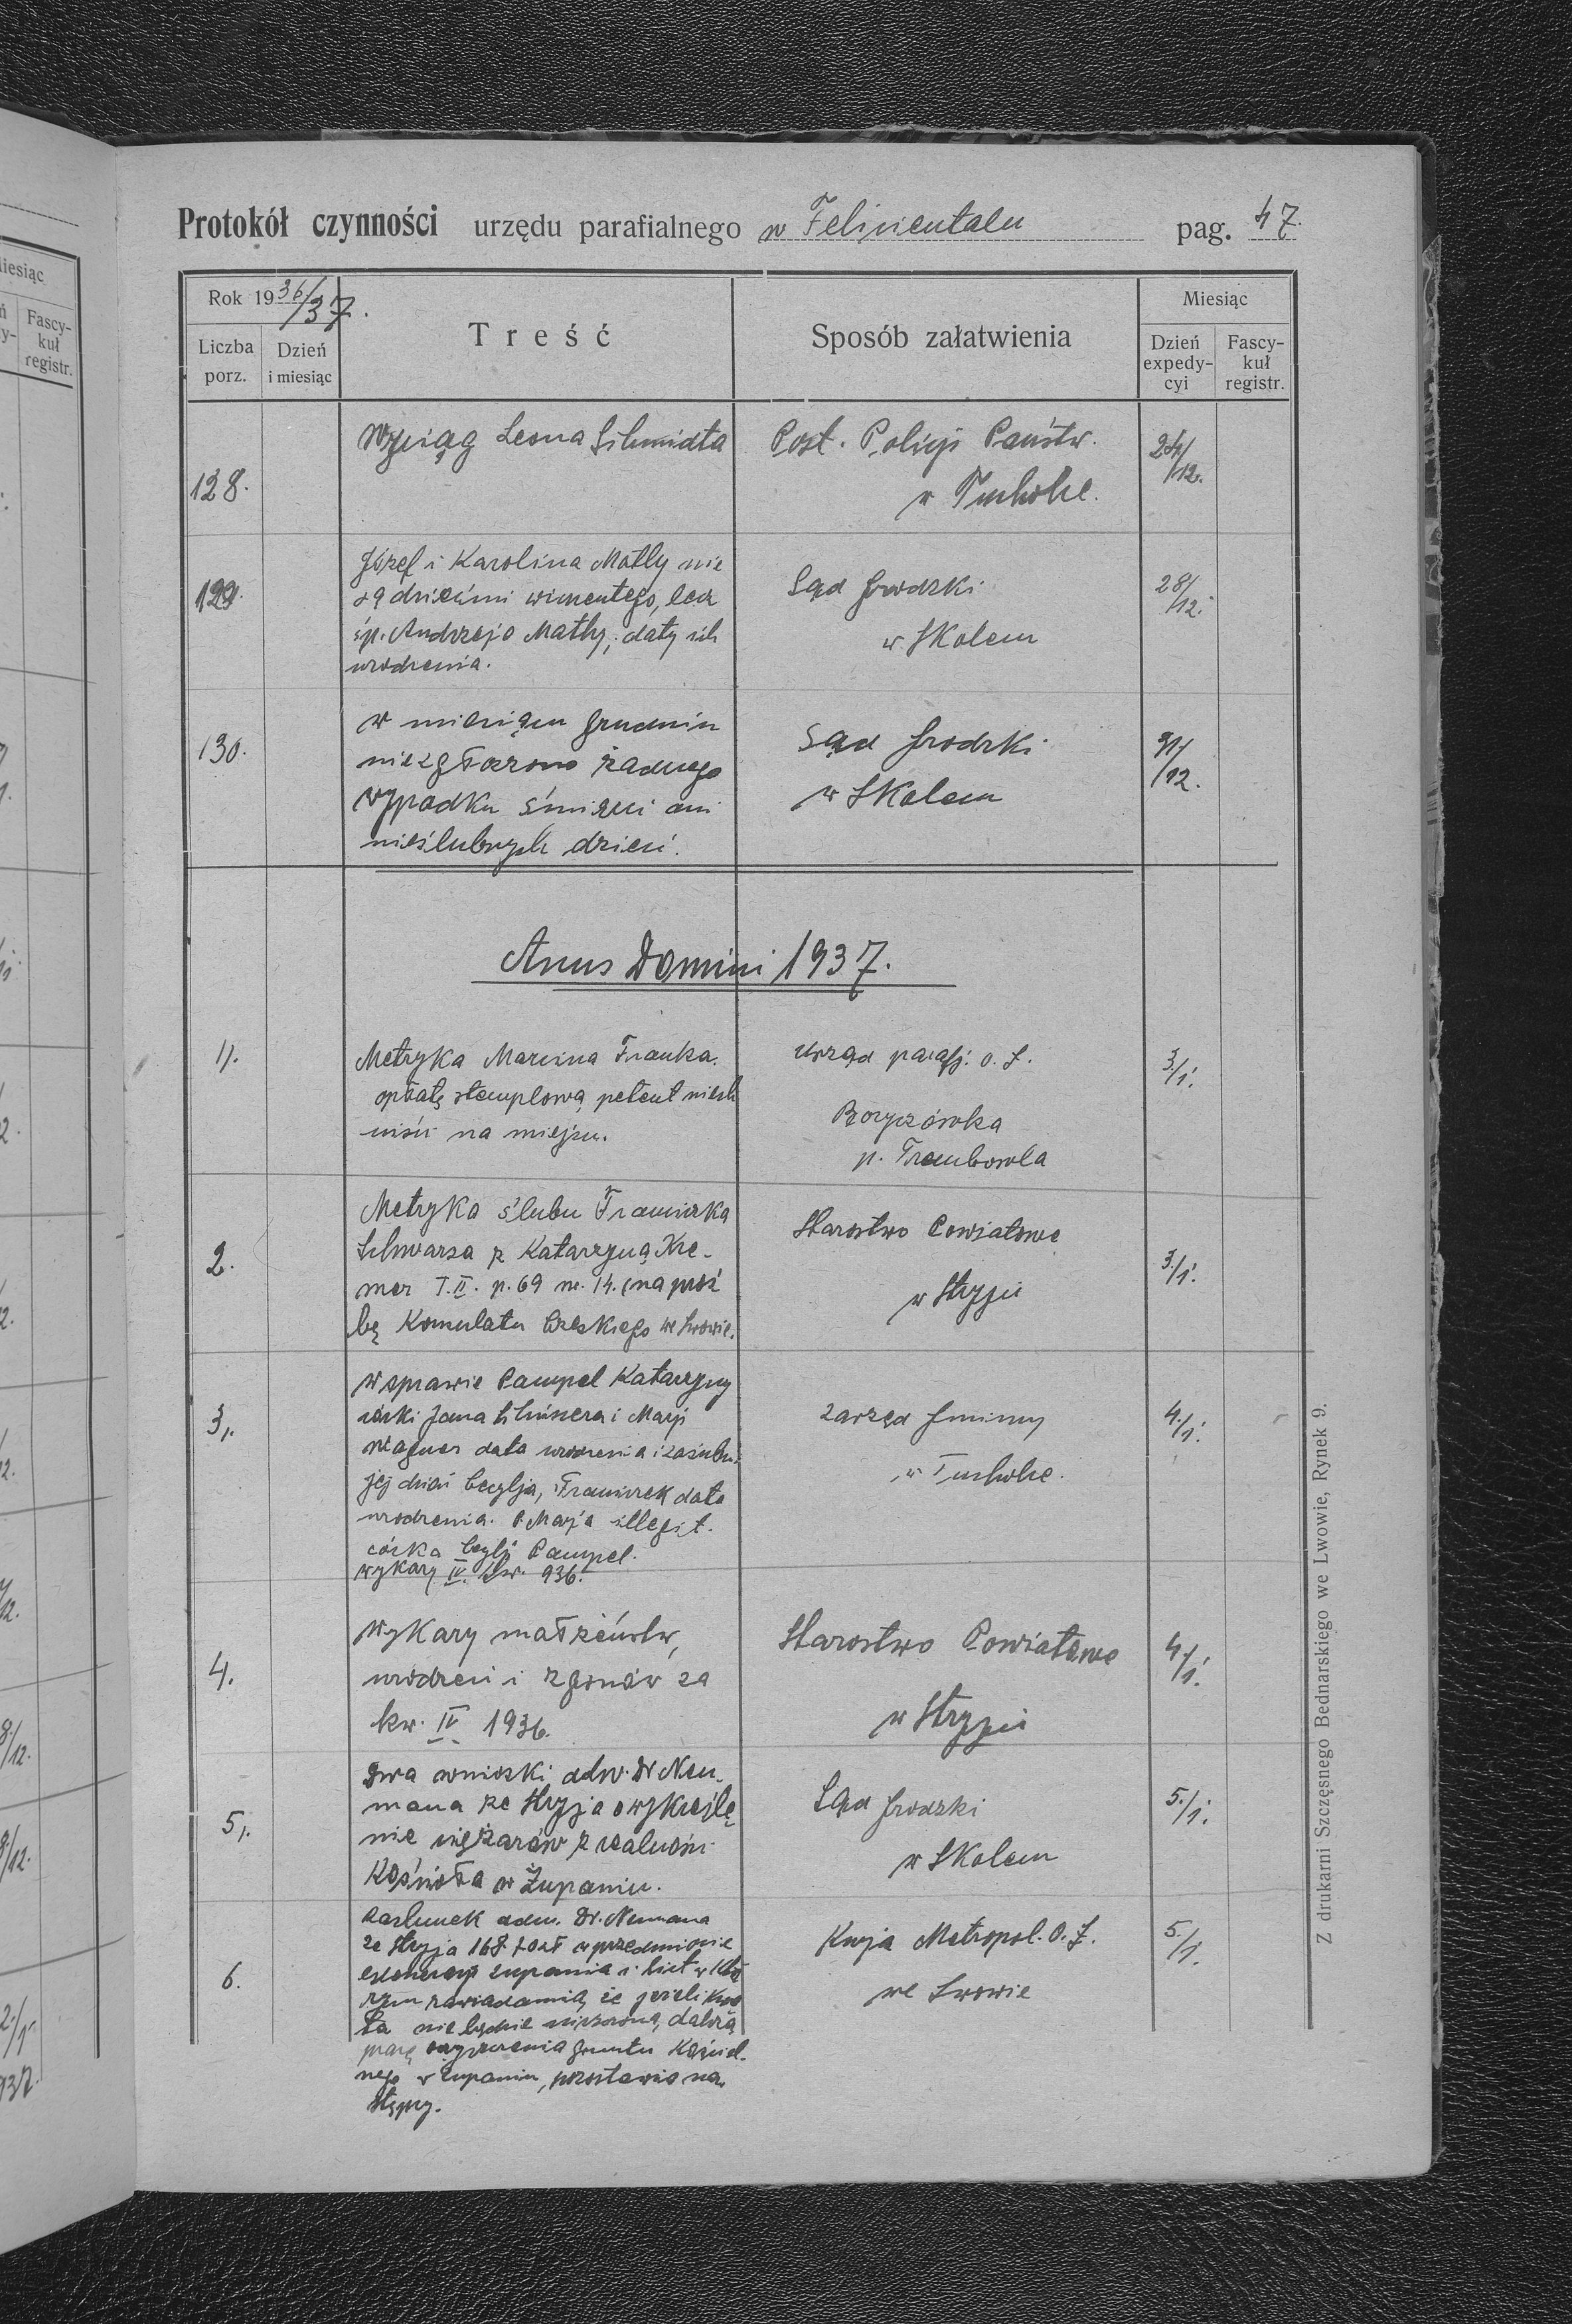 Protokół czynności urzędu parafialnego w Felicientalu pag. 47.
Rok 1936/37.
Liczba porz.
Dzień i miesiąc
Treść
Sposób załatwienia
Miesiąc
Dzień expedy-cyi
Fascy-kuł registr.
128.
Wyciąg Leona Schmidta
Post. Policji Państw.
w Tucholce.
24/12.
129.
Józef i Karolina Matly nie
są dziećmi wincentego, lecz
śp. Andrzeja Matly, daty ich
urodzenia.
Sąd Grodzki
w Skolem
28/12.
130.
w miesiącu grudniu
nie zgłoszono żadnego
wypadku śmierci ani
nieślubnych dzieci.
Sąd Grodzki
w Skolem
31/12.
Anus Domini 1937.
1).
Metryka Marcina Franka.
opłatę stemplową petent niech
uiści na miejscu.
Urząd parafj. o. ł.
Boryczówka
p. Trembowla
3./1.
2.
Metryka ślubu Franciszka
Schwarza z Katarzyną Kre-
mer T.II. p. 69 nr. 14. (na proś
bę Konsulatu Czeskiego we Lwowie.
Starostwo Powiatowe
w Stryju
3./1.
3,.
w sprawie Pampel Katarzyny
córki Jana i Marji
Wagner data urodzenia i zaślubin.
jej dzieci Cecylja, Franciszek data
urodzenia. Marja illegit.
córka Cecylji Pampel.
wykazy IV. kw. 936.
Zarząd Gminny
w Tucholce.
4./1.
4.
Wykazy małżeństw,
urodzeń i zgonów za
kw. IV 1936.
Starostwo Powiatowe
w Stryju
4./1.
5,.
Dwa wnioski adw. Dr Neu-
mana ze Stryja o wykreśle
nie ciężarów z realności
Kościoła w Żupaniu.
Sąd Grodzki
w Skolem
5./1.
6.
Rachunek adw. Dr. Neumana
ze Stryja 168. zł w przedmiocie
Żupania i list w któ
rym zawiadamia, że jeżeli kwo
ta nie będzie uiszczona, dalszą
pracę oczyszczenia gruntu Kościel-
nego w Żupaniu, pozostawia na
stępcy.
Kurja Metropol. O. Ł.
we Lwowie
5./1.
Z drukarni Szczęsnego Bednarskiego we Lwowie, Rynek 9.
iesiąc
Fascy-
kuł
registr.